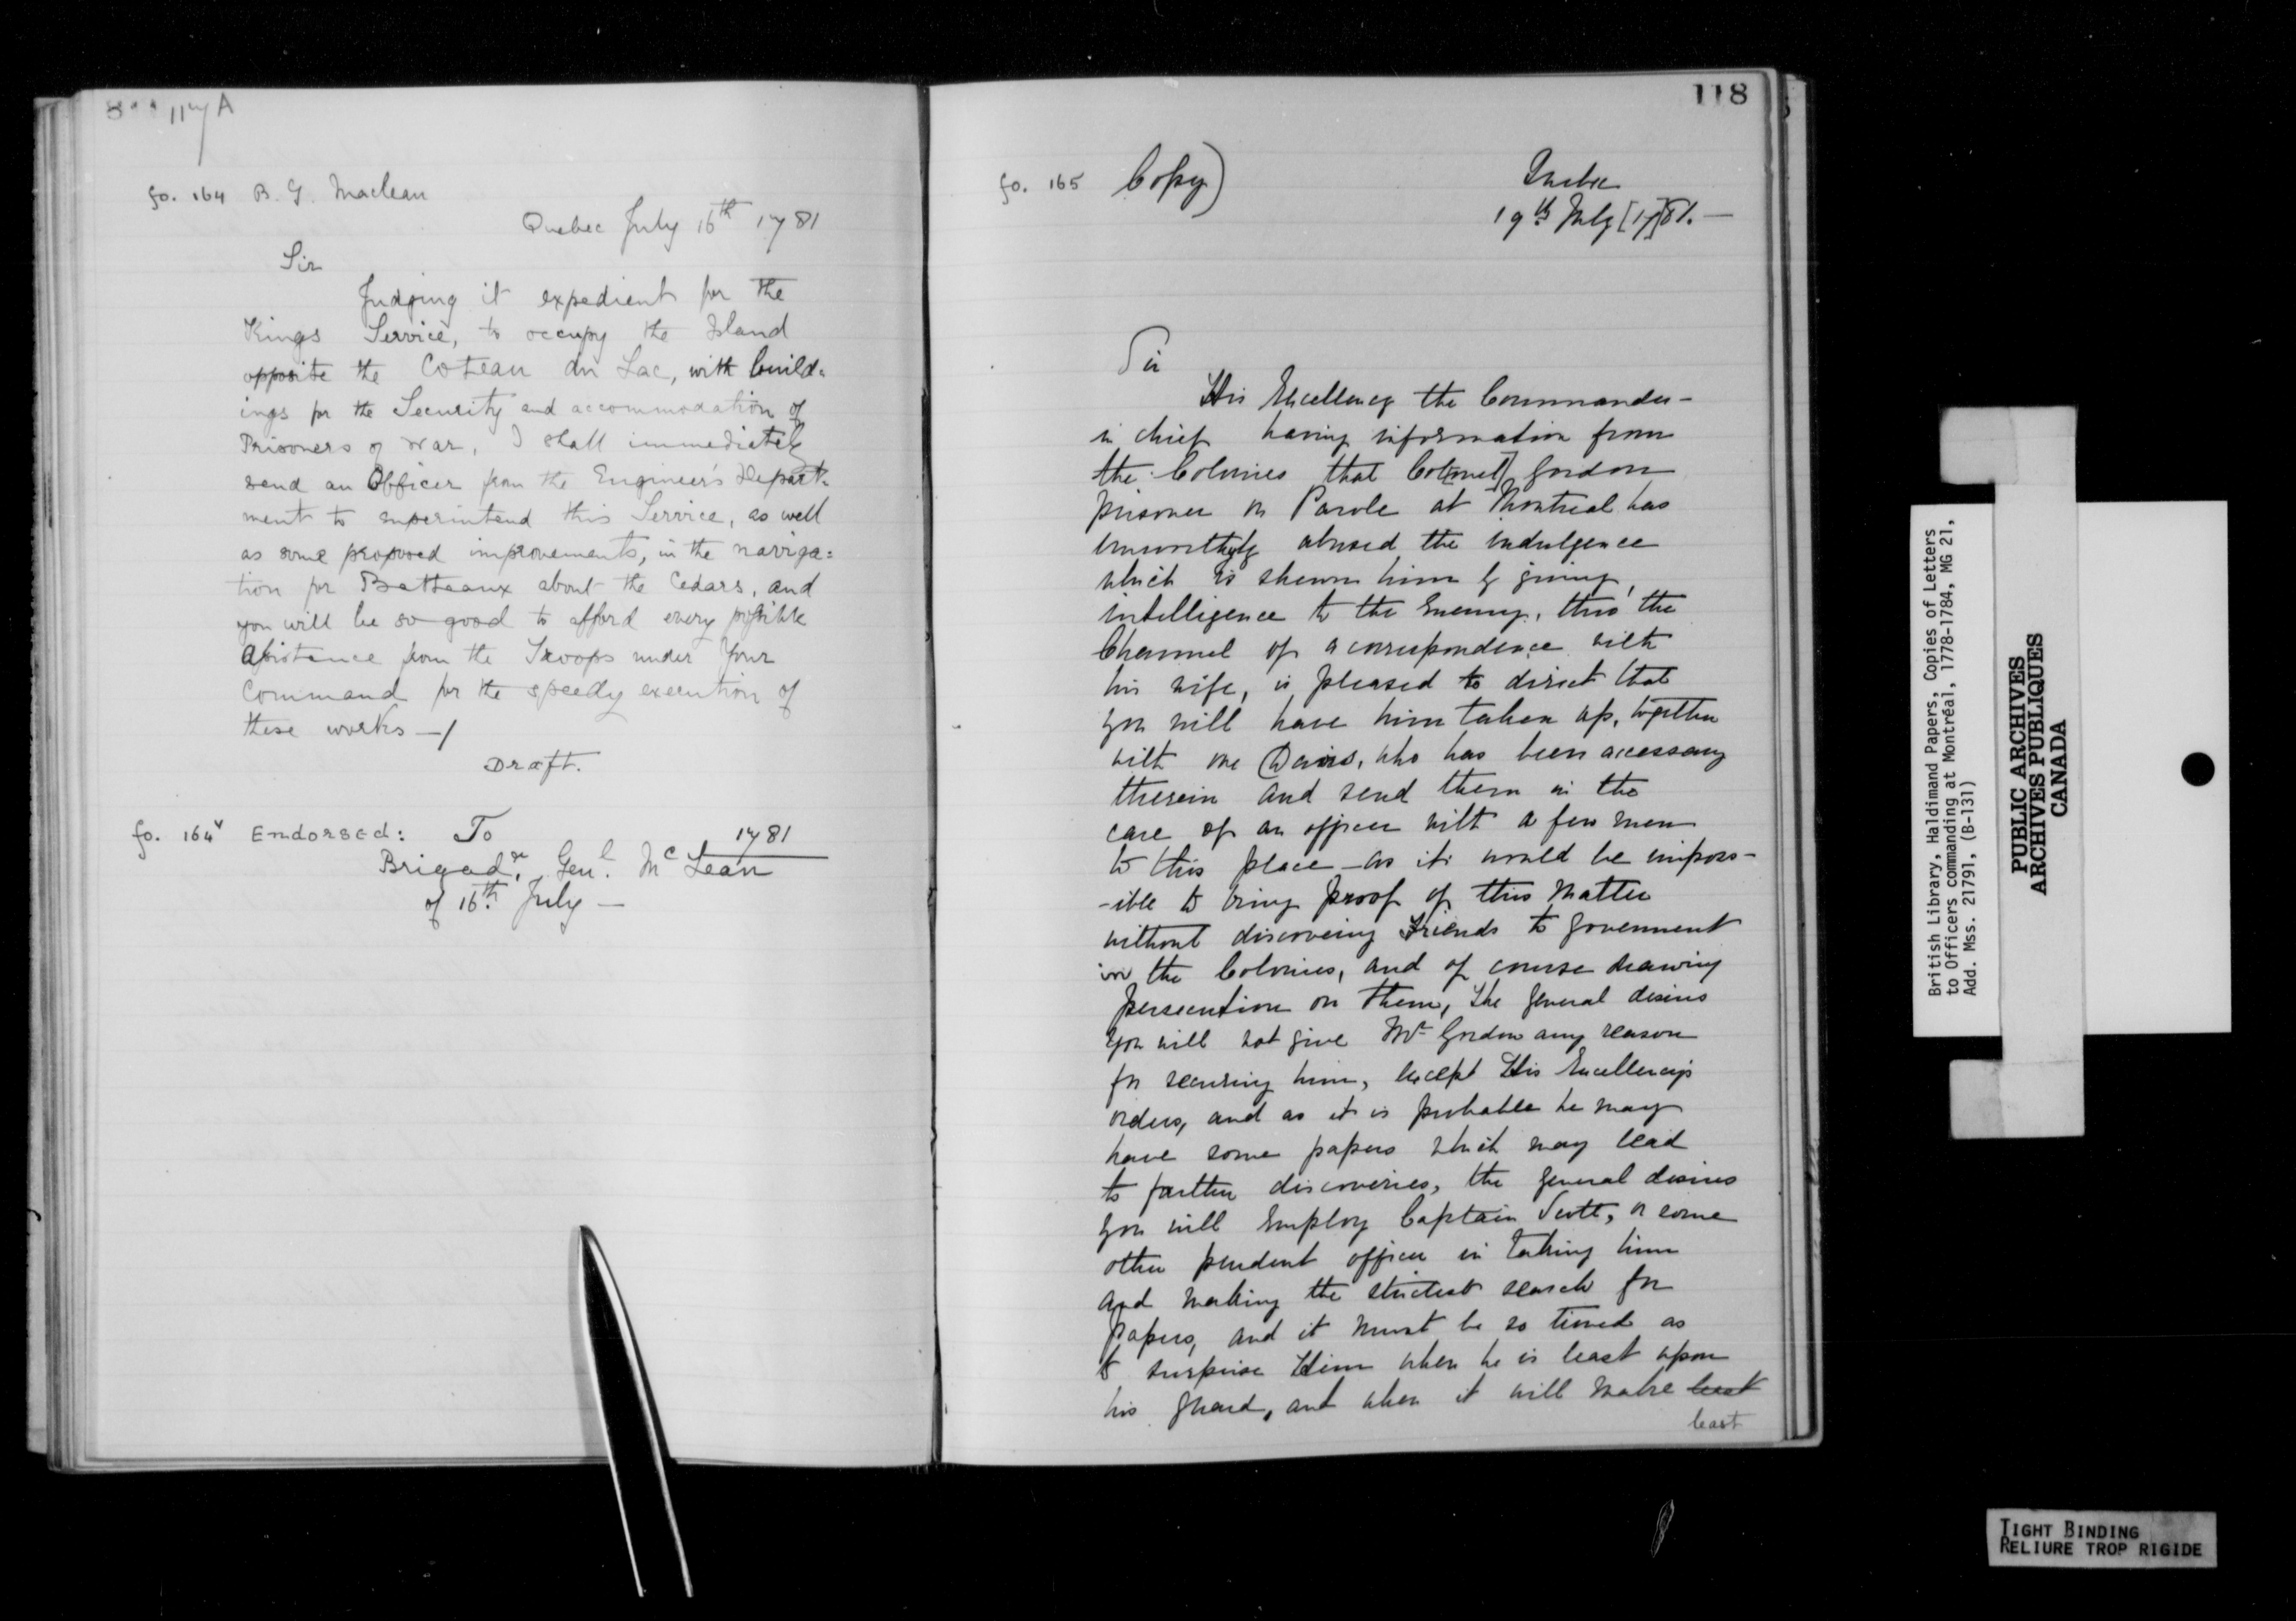 117A
fo. 164 B. G. Maclean
Quebec July 16th 1781
Sir
Judging it expedient for the
Kings Service, to occupy the Island
opposite the Coteau du Lac, with build=
ings for the Security and accommodation of
Prisoners of War, I shall immediately
send an Officer from the Engineer's Depart-
ment to superintend this Service, as well
as some proposed improvements, in the naviga=
tion for Batteaux about the Cedars, and
you will be so good to afford every possible
Assistance from the Troops under Your
Command for the speedy execution of
these works —/
Draft.
fo. 164v Endorsed: To 1781
Brigadr. Genl. McLean
of 16th. July —
118
fo. 165 Copy)
Quebec
19th July [17]81. —
Sir
His Excellency the Commander-
in chief having information from
the Colonies that Col[onel] Gordon
prisoner on Parole at Montreal has
unworthyly abused the indulgence
which is shewn him by giving,
intelligence to the Enemy, thro' the
Channel of a correspondence with
his wife, is pleased to direct that
you will have him taken up, together
with one Davis, who has been accessary
therein and send them in the
care of an officer with a few men
to this place — as it would be imposs-
-ible to bring proof of this Matter
without discovering Friends to Government
in the Colonies, and of course drawing
persecution on them, the General desires
you will not give Mr Gordon any reason
for securing him, except His Excellency's
orders, and as it is probable he may
have some papers which may lead
to farther discoveries, the General desires
you will employ Captain Scott, or some
other prudent officer in taking him
and making the strictest search for
papers, and it must be so timed as
to surprise Him when he is least upon
his guard, and when it will make least
least
British Library, Haldimand Papers, Copies of Letters
to Officers commanding at Montréal, 1778-1784, MG 21,
Add. Mss. 21791, (B-131)
PUBLIC ARCHIVES
ARCHIVES PUBLIQUES
CANADA
TIGHT BINDING
RELIURE TROP RIGIDE